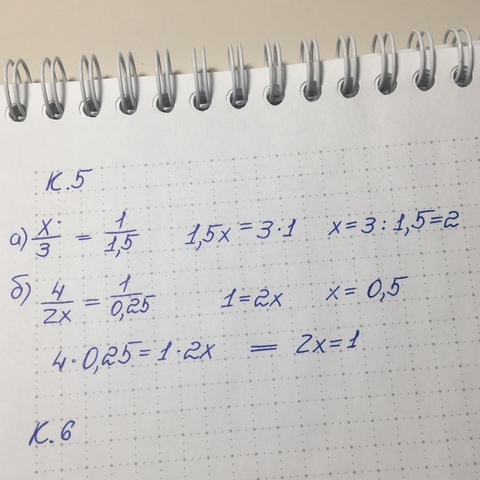 К.5
а) x/3 = 1/1,5 1,5x = 3·1 x = 3 : 1,5 = 2
б) 4/2x = 1/0,25 1 = 2x x = 0,5
4·0,25 = 1·2x = 2x = 1
К.6